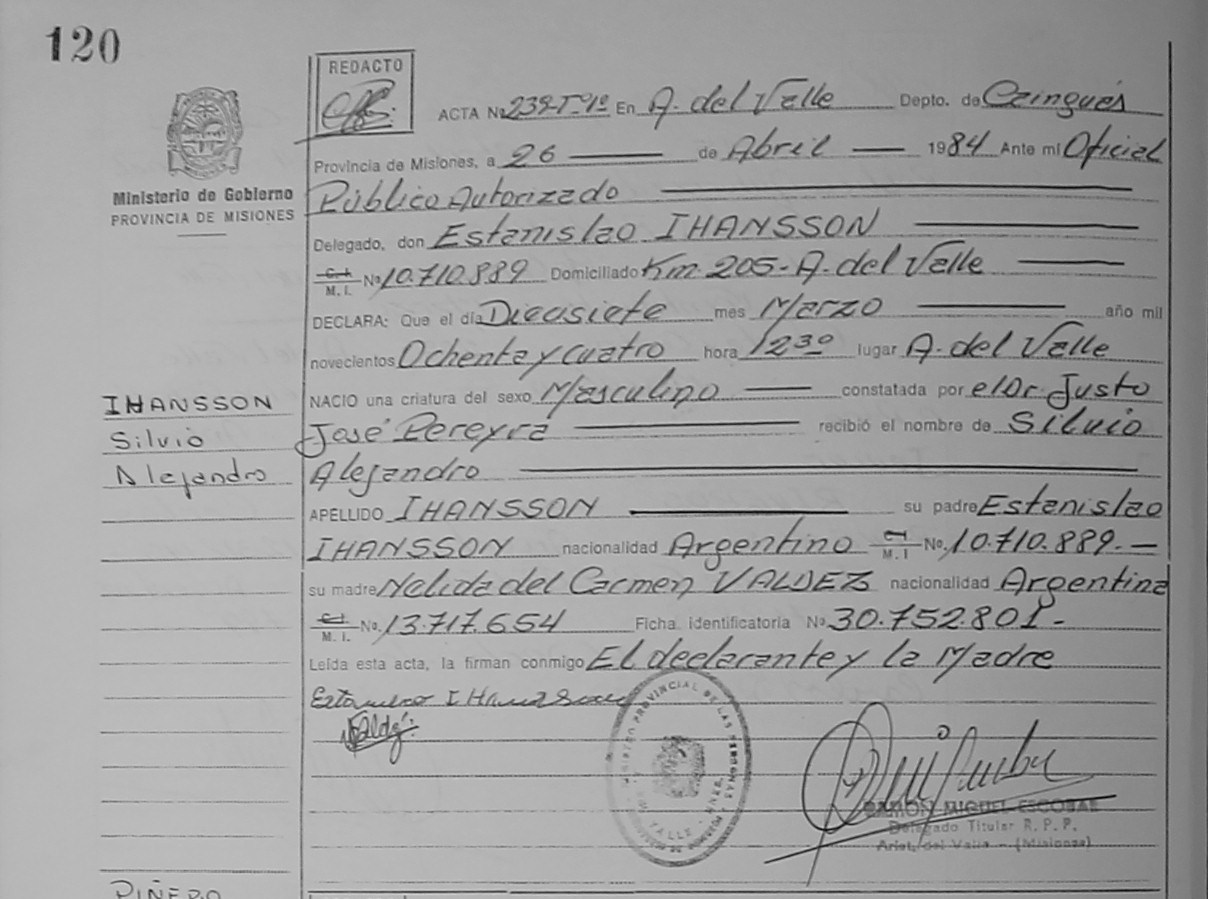 120
REDACTO
ACTA No 239-Tº1º En A. del Valle Depto. de Cainguás
Provincia de Misiones, a 26 de Abril 1984 Ante mí Oficial
Ministerio de Gobierno
PROVINCIA DE MISIONES
Público Autorizado
Delegado, don Estanislao IHANSSON
C. I. M. I. No 10.710.889 Domiciliado Km. 205 - A. del Valle
DECLARA: Que el día Diecisiete mes Marzo año mil
novecientos Ochenta y cuatro hora 12 30 lugar A. del Valle
NACIO una criatura del sexo Masculino constatada por el Dr. Justo
José Pereyra recibió el nombre de Silvio
Alejandro
IHANSSON
Silvio
Alejandro
APELLIDO IHANSSON su padre Estanislao
IHANSSON nacionalidad Argentino C. I. M. I. No. 10.710.889.-
su madre Nelida del Carmen VALDEZ nacionalidad Argentina
C. I. M. I. No. 13.717.654 Ficha identificatoria No 30.752.801-
Leída esta acta, la firman conmigo El declarante y la Madre
RAMON MIGUEL ESCOBAR
Delegado Titular R. P. P.
Arist. del Valle - (Misiones)
PIÑERO